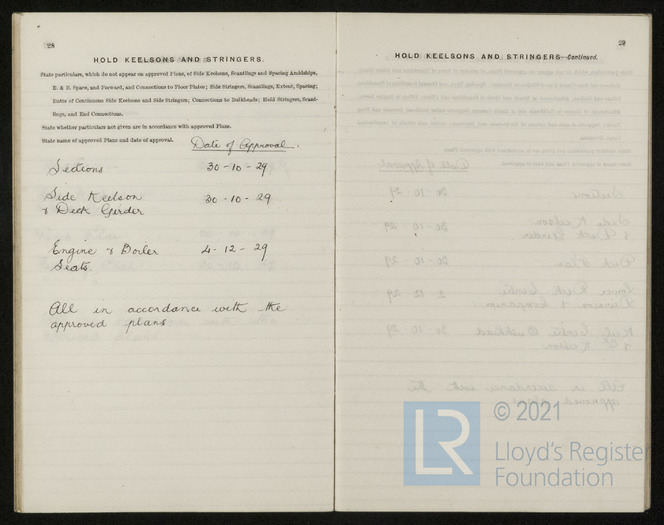 28
HOLD KEELSONS AND STRINGERS.
State particulars, which do not appear on approved Plans, of Side Keelsons, Scantlings and Spacing Amidships,
E. & B. Space, and Forward, and Connections to Floor Plates; Side Stringers, Scantlings, Extent, Spacing;
Extra or Continuous Side Keelsons and Side Stringers; Connections to Bulkheads; Hold Stringers, Scant-
lings, and End Connections.
State whether particulars not given are in accordance with approved Plans.
State name of approved Plans and date of approval.
Date of Approval.
Sections 30-10-29
Side Keelson 30-10-29
& Deck Girder
Engine & Boiler 4-12-29
Seats.
All in accordance with the
approved plans
29
HOLD KEELSONS AND STRINGERS—Continued.
LR
© 2021
Lloyd's Register
Foundation